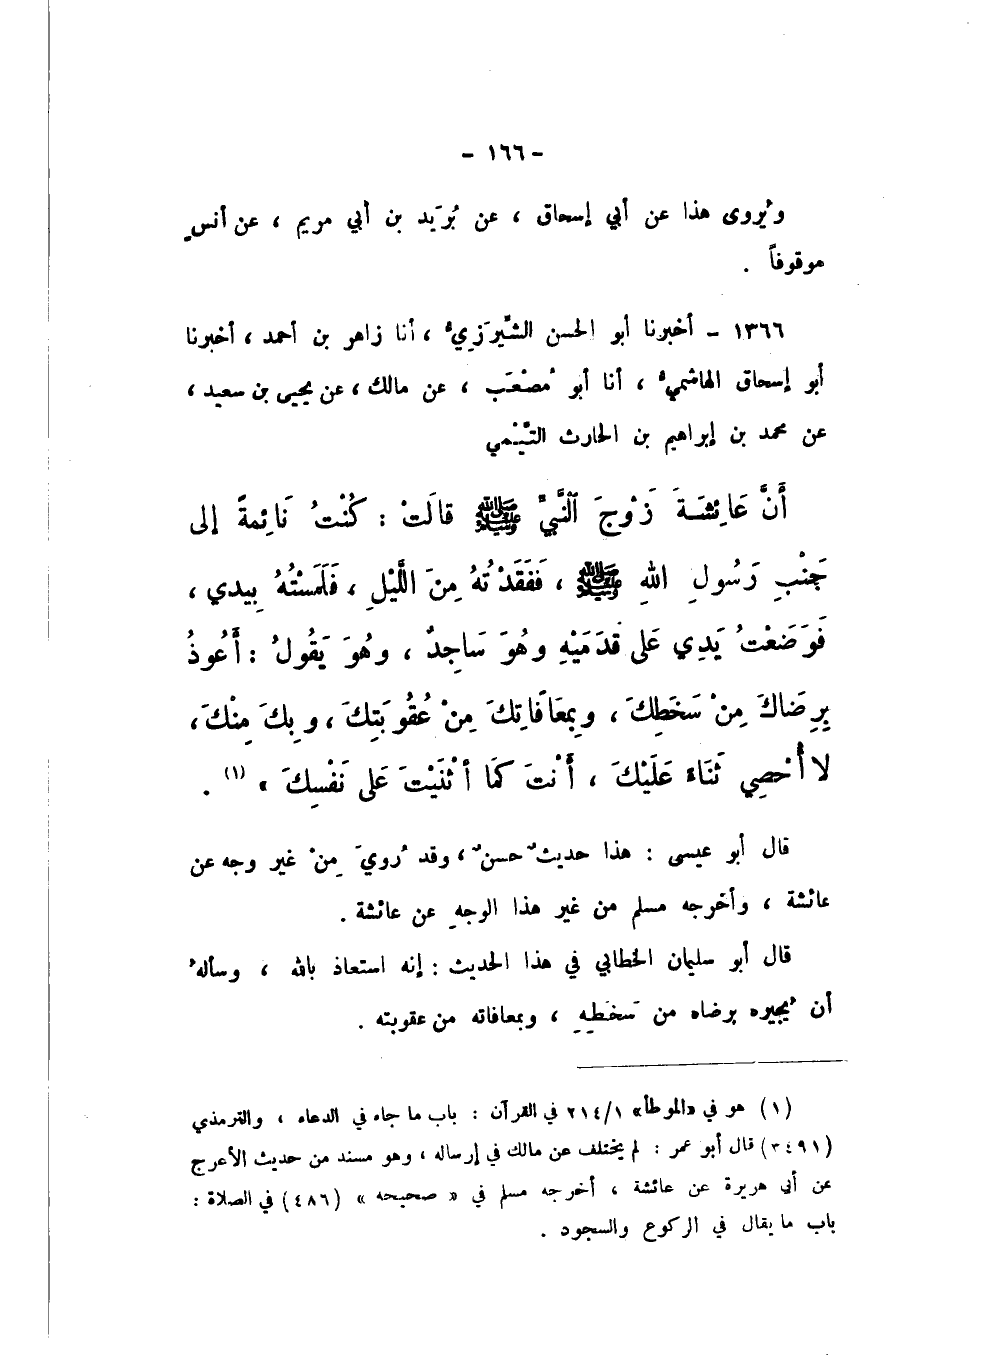 - ١٦٦ -
ويُروى هذا عن أبي إسحاق ، عن بُرَيد بن أبي مريم ، عن أنسٍ
موقوفاً .
١٣٦٦ - أخبرنا أبو الحسن الشِّيرَزِيُّ ، أنا زاهر بن أحمد ، أخبرنا
أبو إسحاق الهاشميُّ ، أنا أبو مُصْعَب ، عن مالك ، عن يحيى بن سعيد ،
عن محمد بن إبراهيم بن الحارث التَّيْمي
أَنَّ عَائِشَةَ زَوْجَ النَّبِيِّ ﷺ قالَتْ : كُنْتُ نَائِمةً إلى
جَنْبِ رَسُولِ اللهِ ﷺ ، فَفَقَدْتُهُ مِنَ اللَّيْلِ ، فَلَمَسْتُهُ بِيدي ،
فَوَضَعْتُ يَدِي عَلى قدَمَيْهِ وهُوَ سَاجِدٌ ، وهُوَ يَقُولُ : أَعُوذُ
بِرِضاكَ مِنْ سَخَطِكَ ، وبِمعَافَاتِكَ مِنْ عُقُوبَتِكَ ، وبِكَ مِنْكَ ،
لا أُحْصِي ثَنَاءً عَلَيْكَ ، أَنْتَ كمَا أثْنَيْتَ عَلى نَفْسِكَ » (١) .
قال أبو عيسى : هذا حديثٌ حسنٌ ، وقد رُويَ مِنْ غير وجه عن
عائشة ، وأخرجه مسلم من غير هذا الوجهِ عن عائشة .
قال أبو سليمان الخطابي في هذا الحديث : إنه استعاذ بالله ، وسألهُ
أن يُجيره برضاه من سَخَطِهِ ، وبمعافاته من عقوبته .
(١) هو في «الموطأ» ٢١٤/١ في القرآن : باب ما جاء في الدعاء ، والترمذي
(٣٤٩١) قال أبو عمر : لم يختلف عن مالك في إرساله ، وهو مسند من حديث الأعرج
عن أبي هريرة عن عائشة ، أخرجه مسلم في « صحيحه » (٤٨٦) في الصلاة :
باب ما يقال في الركوع والسجود .